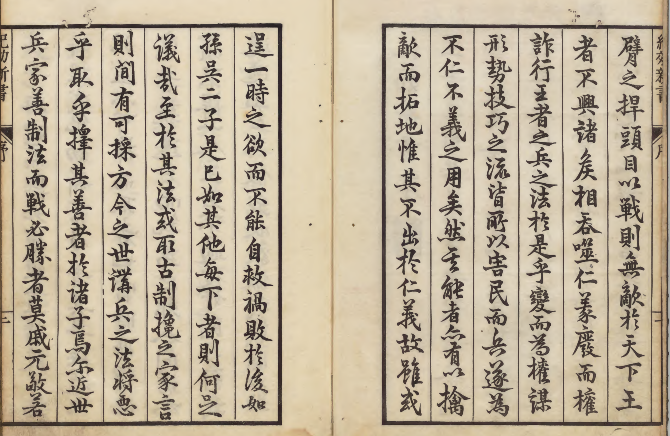 臂之捍頭目以戰則無敵於天下王
者不興諸矦相吞噬仁義廢而權
詐行王者之兵之法於是乎變而為權謀
形勢技巧之流皆所以害民而兵遂為
不仁不義之用矣然其能者亦有以擒
敵而拓地惟其不出於仁義故雖或
逞一時之欲而不能自救禍敗於後如
孫吳二子是已如其他每下者則何足
議哉至於其法或取古制攙之家言
則間有可採方今之世講兵之法將悪
乎取乎擇其善者於諸子焉尓近世
兵家善制法而戰必勝者莫戚元敬若
紀効新書
序
二